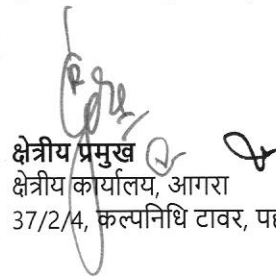 क्षेत्रीय प्रमुख
क्षेत्रीय कार्यालय, आगरा
37/2/4, कल्पनिधि टावर,